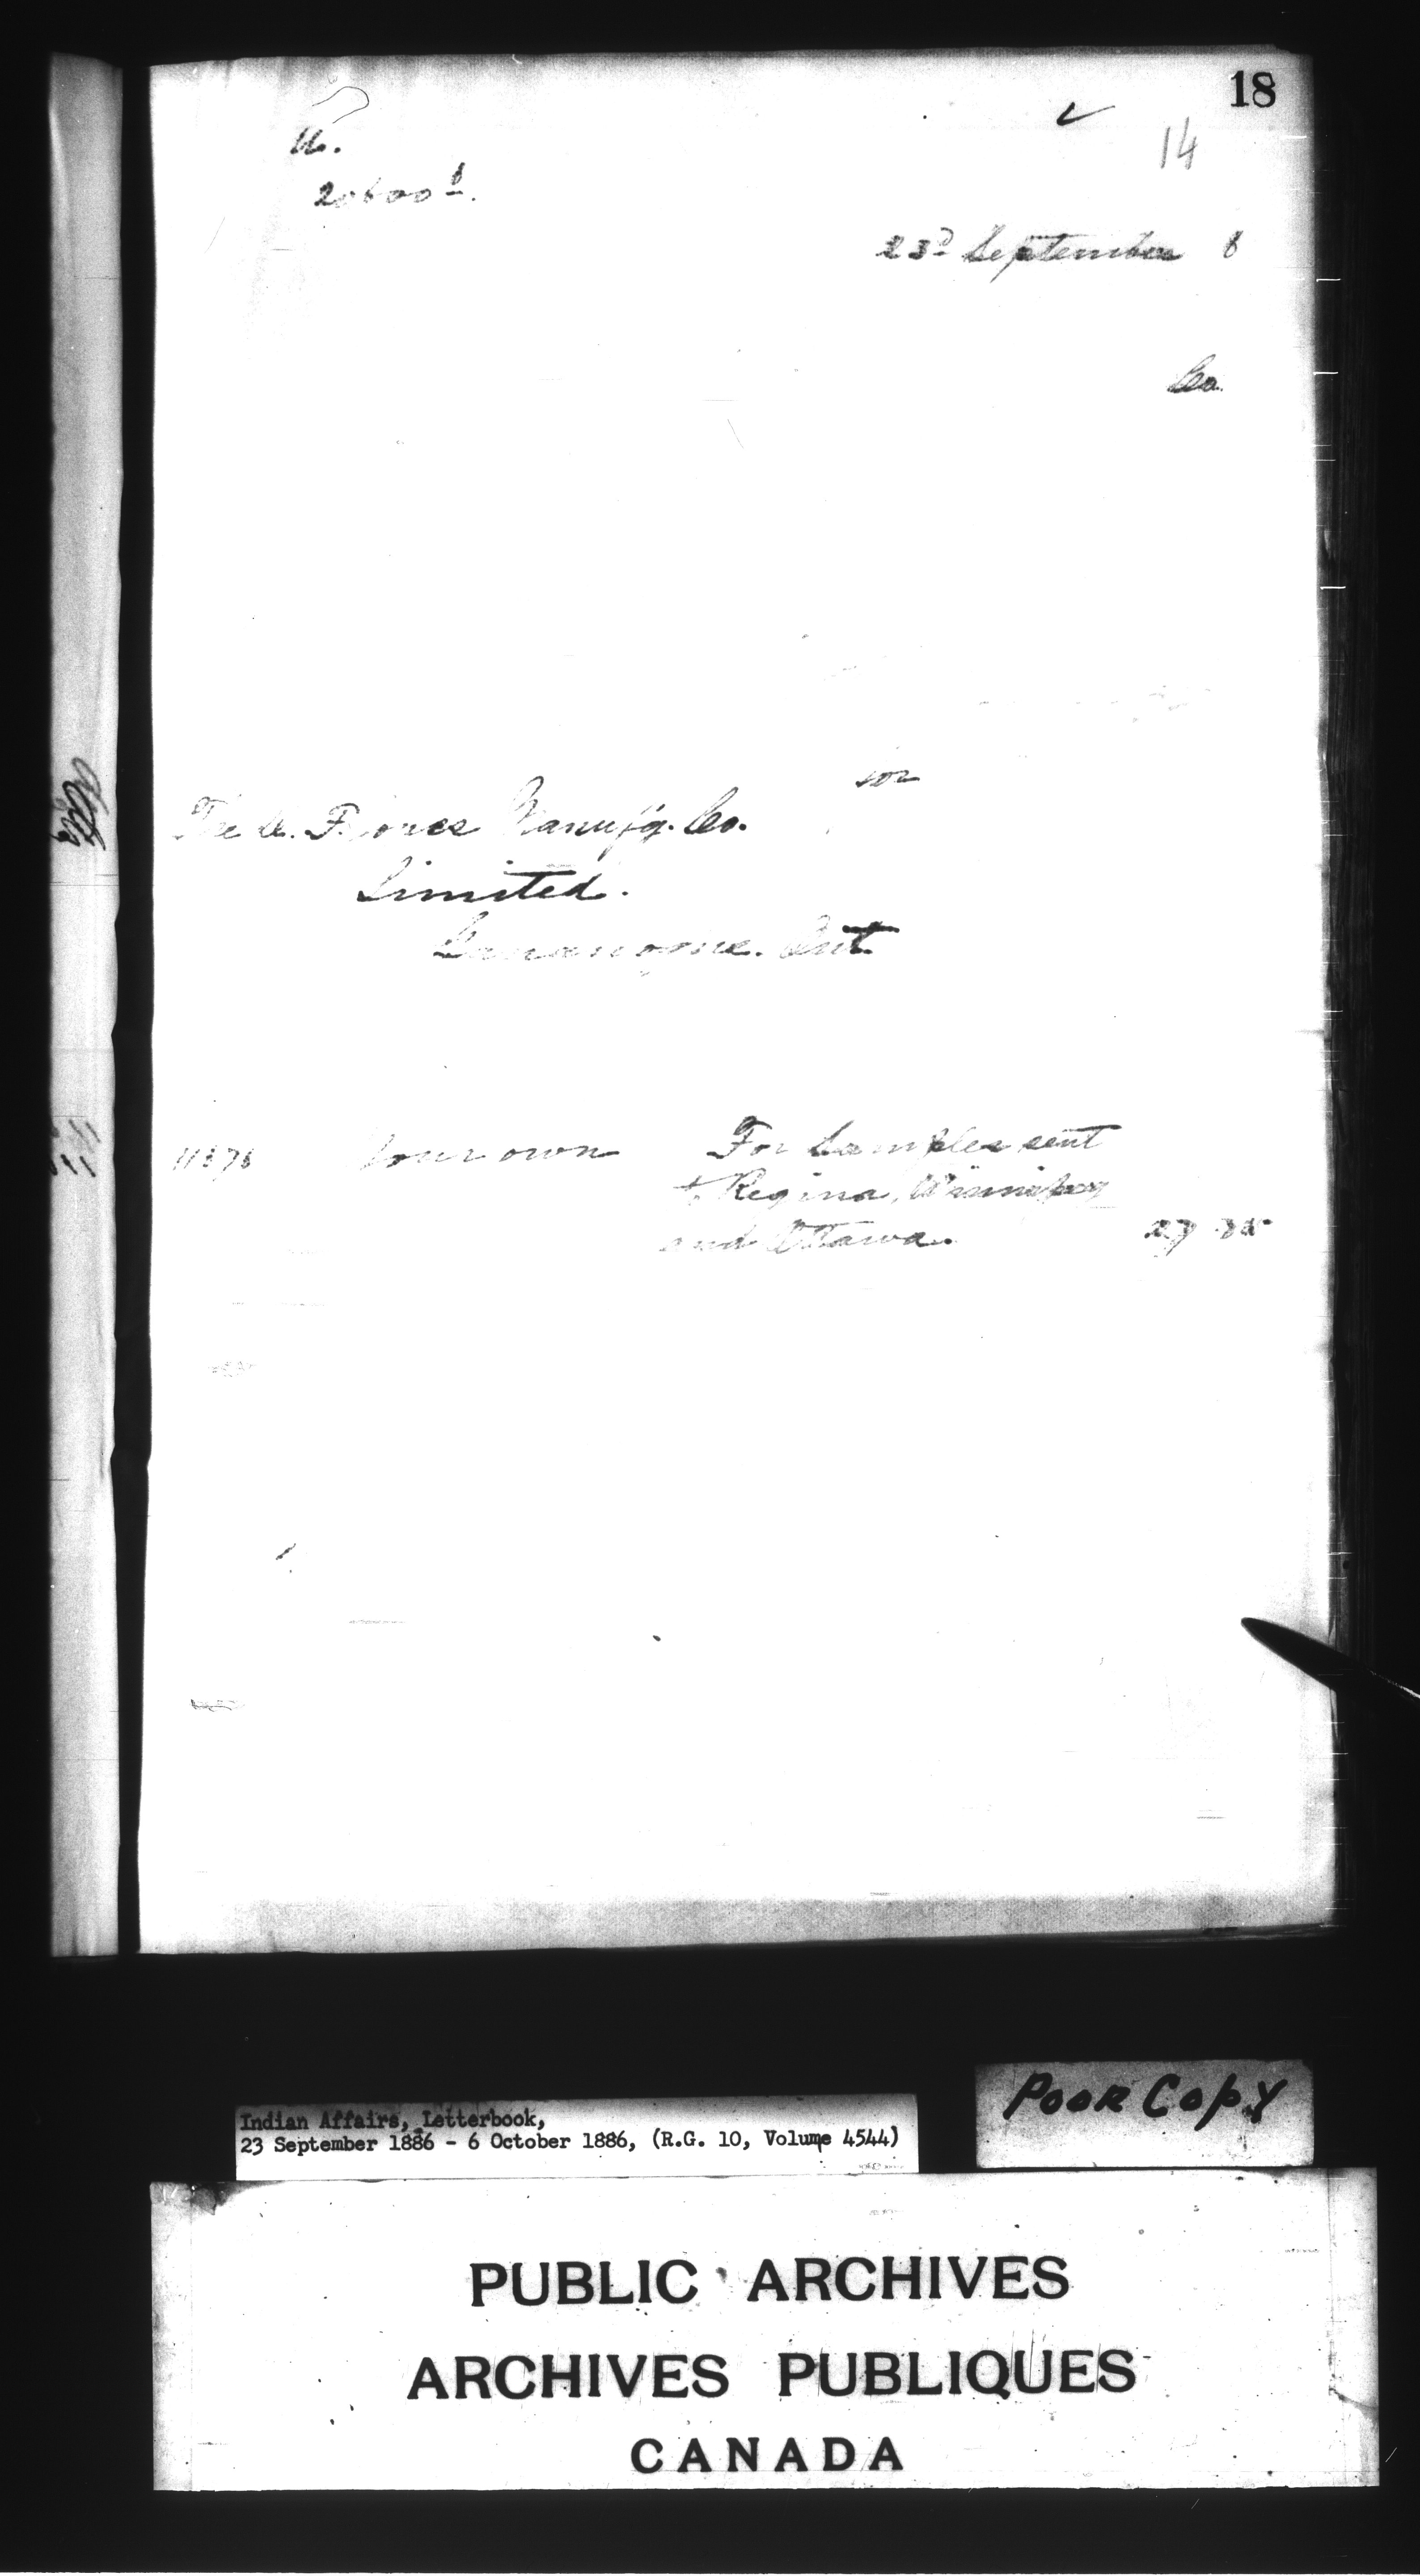 18
14
23d September 6
Co.
The D. F. Jones Manufg. Co.
Limited.
Gananoque. Ont.
Your own For Samples sent
to Regina, Winnipeg
and Ottawa. 27 35
Poor Copy
Indian Affairs, Letterbook,
23 September 1886 - 6 October 1886, (R.G. 10, Volume 4544)
PUBLIC ARCHIVES
ARCHIVES PUBLIQUES
CANADA